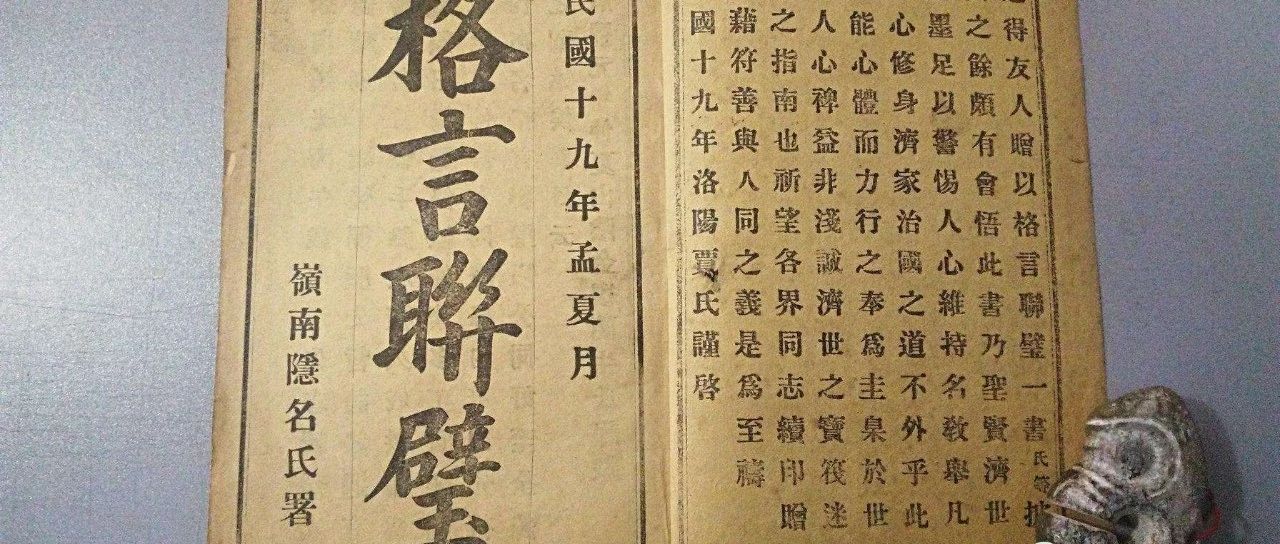 得友人贈以格言聯璧一書氏等披
之餘頗有會悟此書乃聖賢濟世
墨足以警惕人心維持名敎舉凡
心修身濟家治國之道不外乎此
能心體而力行之奉爲圭臬於世
人心裨益非淺誠濟世之寶筏迷
之指南也祈望各界同志續印贈
藉符善與人同之義是爲至禱
國十九年洛陽賈氏謹啓
民國十九年孟夏月
格言聯璧
嶺南隱名氏署